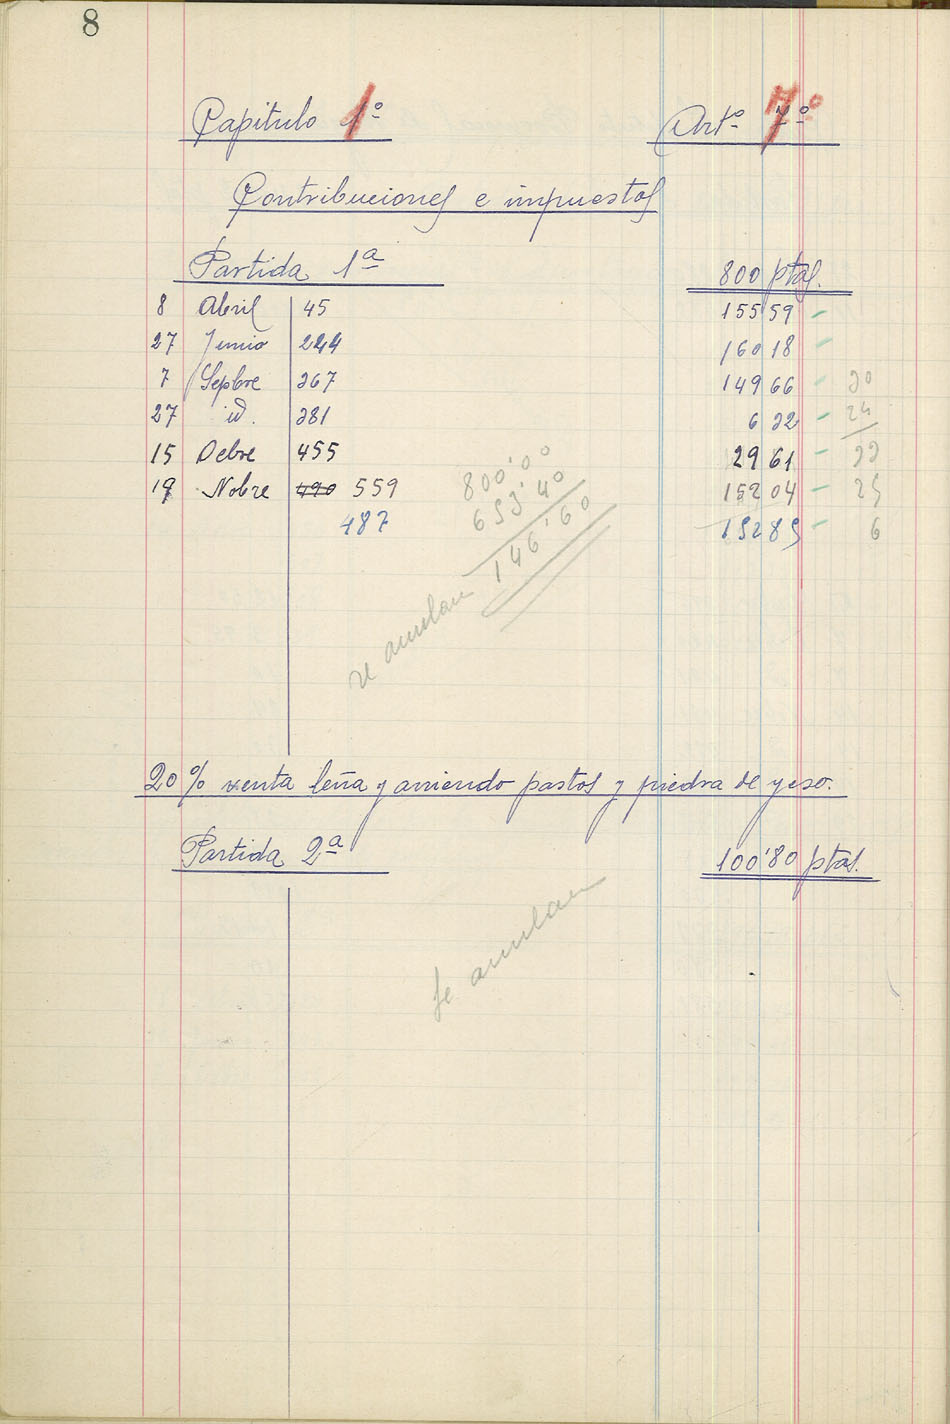 8
Capitulo 1º Artº 7º
Contribuciones e impuestos
Partida 1ª 800 ptas.
8 Abril 45 155 59
27 Junio 244 160 18
7 Sepbre 267 149 66 20
27 id. 281 6 22 24
15 Debre 455 29 61 22
19 Nobre 490 559 152 04 25
487 152 85 6
800'00
653'40
146'60
se anulan
20 % venta leña y arriendo pastos y piedra de yeso.
Partida 2ª 100'80 ptas.
Se anulan